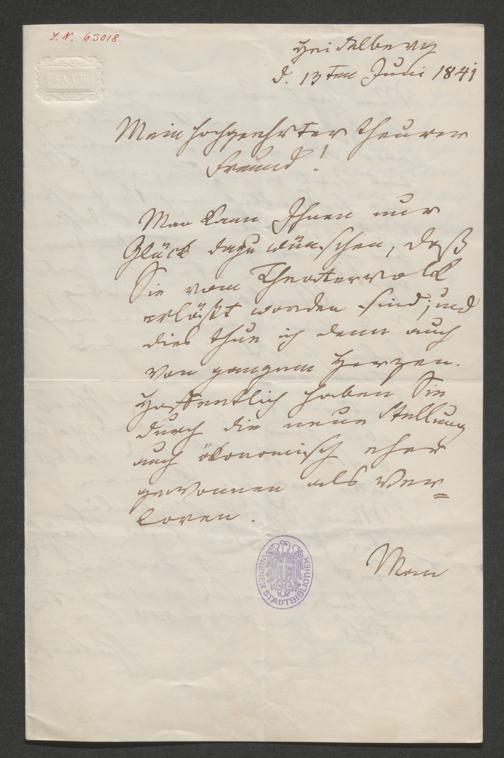 J. N. 63018
BATH
Heidelberg
d. 13ten Juni 1841
Mein hochgeehrter theurer
Freund!
Man kann Ihnen nur
Glück dazu wünschen, daß
Sie vom Theatervolk
erlößt worden sind; und
dies thue ich denn auch
von ganzem Herzen.
Hoffentlich haben Sie
durch die neue Stellung
auch ökonomisch eher
gewonnen als ver=
loren.
Man
WIENER STADTBIBLIOTHEK